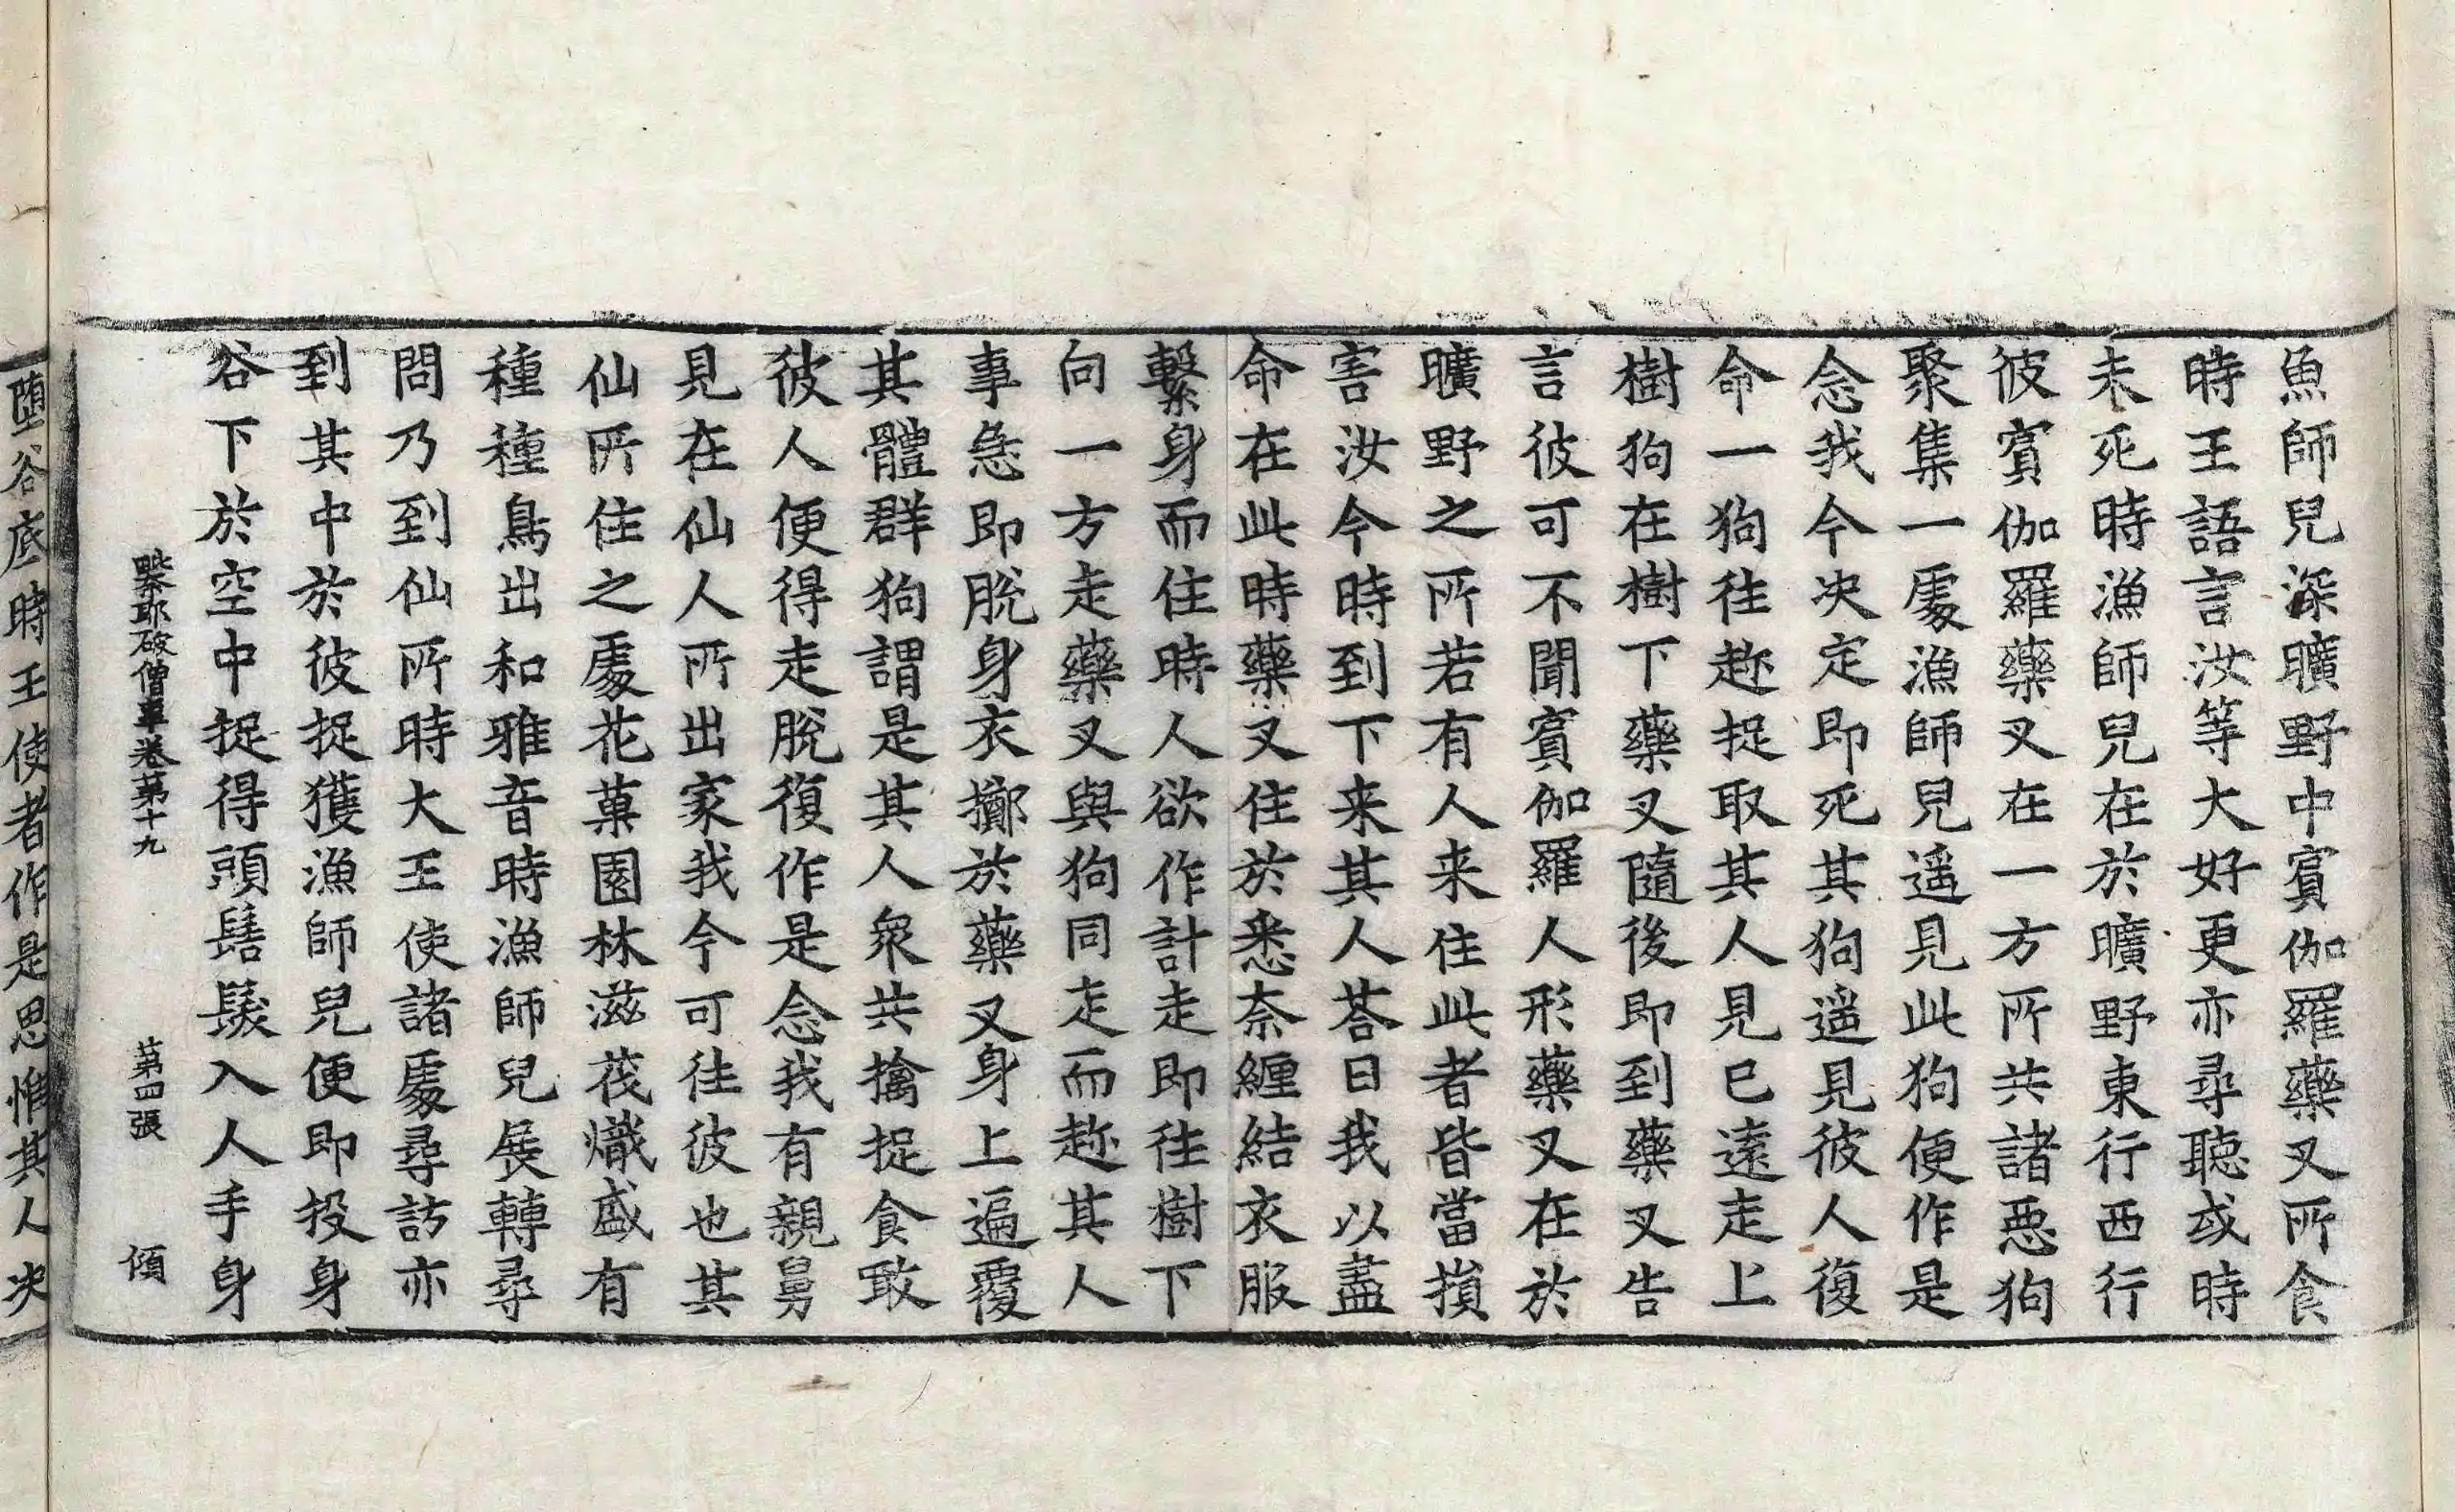 魚師兒深曠野中賓伽羅藥叉所食
時王語言汝等大好更亦尋聽或時
未死時漁師兒在於曠野東行西行
彼賓伽羅藥叉在一方所共諸惡狗
聚集一處漁師兒遥見此狗便作是
念我今决定即死其狗遥見彼人復
命一狗往趂捉取其人見已遠走上
樹狗在樹下藥叉隨後即到藥叉告
言彼可不聞賓伽羅人形藥叉在於
曠野之所若有人来住此者皆當損
害汝今時到下来其人荅曰我以盡
命在此時藥叉住於悉奈纏結衣服
繫身而住時人欲作計走即往樹下
向一方走藥叉與狗同走而趂其人
事急即脫身衣擲於藥叉身上遍覆
其體群狗謂是其人衆共擒捉食敢
彼人便得走脫復作是念我有親舅
見在仙人所出家我今可往彼也其
仙所住之處花菓園林滋茂熾盛有
種種鳥出和雅音時漁師兒展轉尋
問乃到仙所時大王使諸處尋訪亦
到其中於彼捉獲漁師兒便即投身
谷下於空中捉得頭髻髮入人手身
毗奈耶破僧事卷第十九 第四張 傾
墮谷底時王使者作是思惟其人决